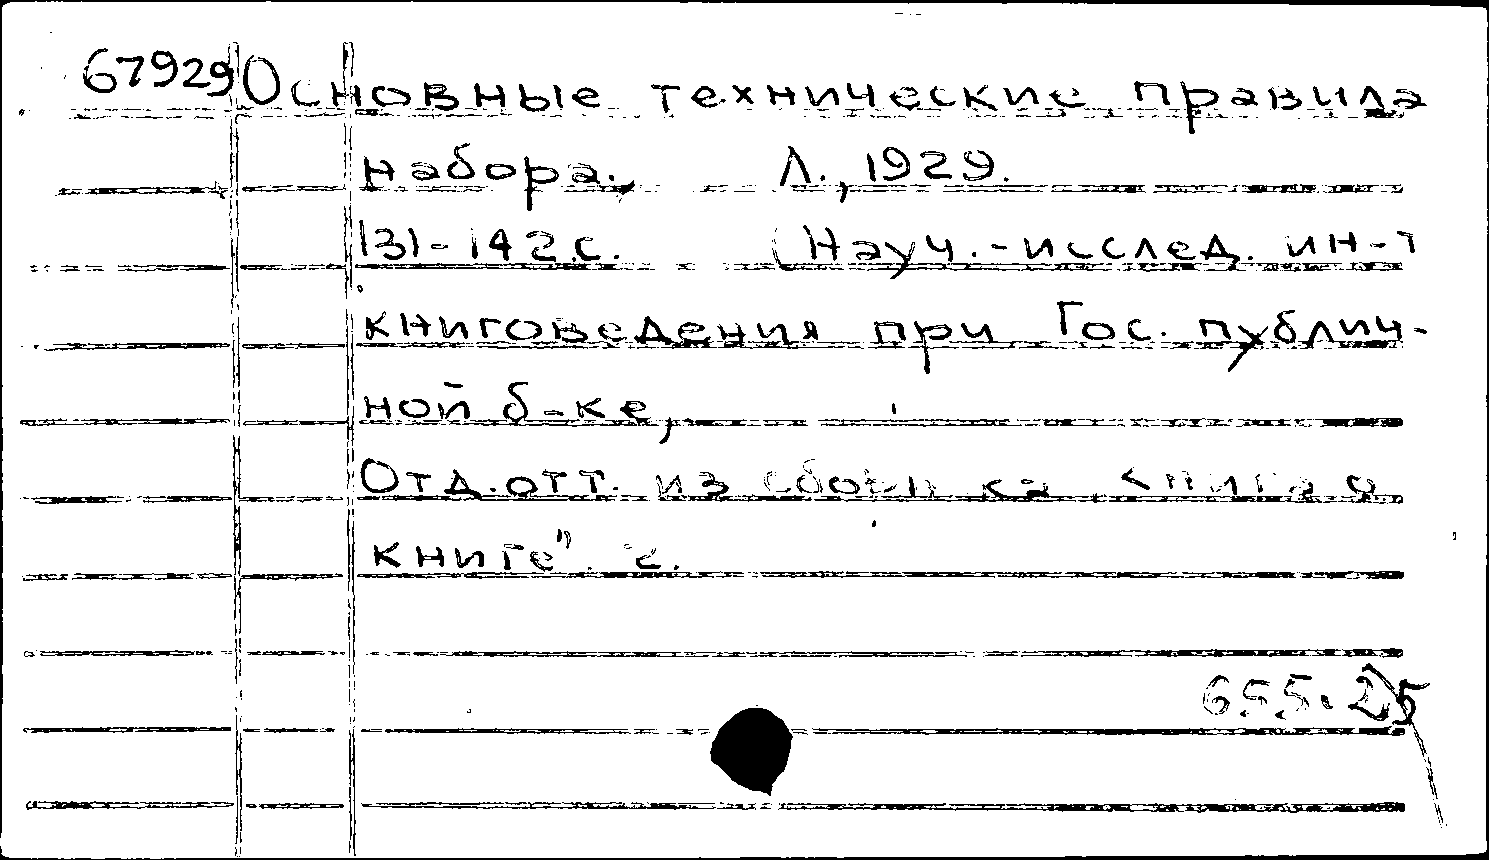 67929 Основные технические правила
набора., Л., 1929.
131-142 с. (Науч.-исслед. ин-т
книговедения при Гос. публич-
ной б-ке,
Отд. отт. из сборника "Книга о
книге"
655.25